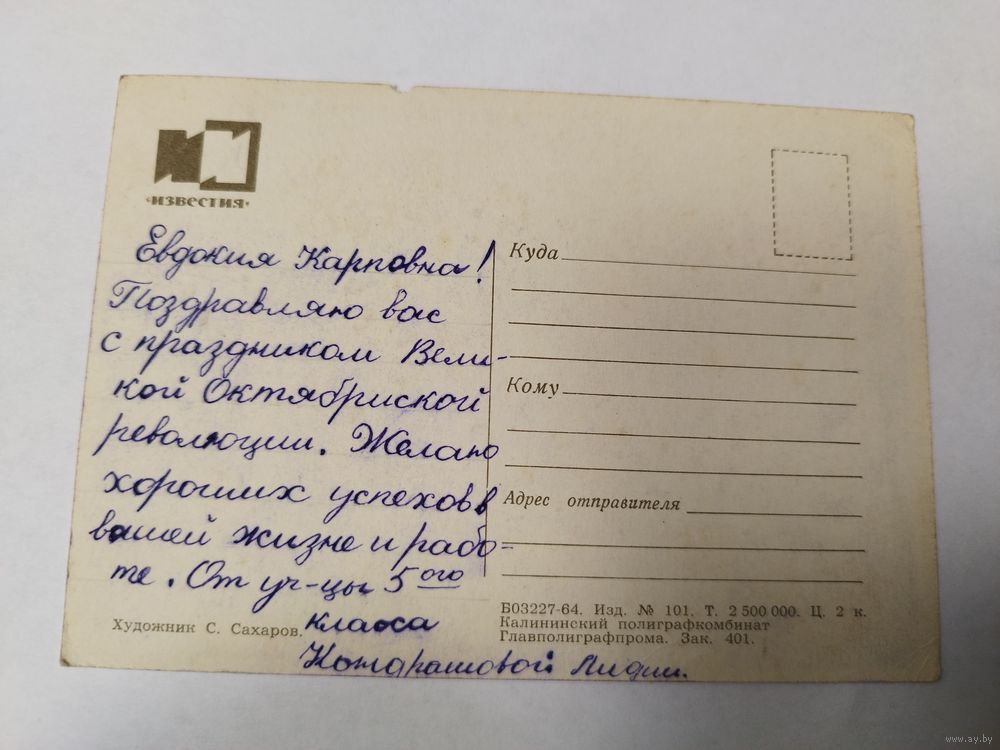 «ИЗВЕСТИЯ»
Евдокия Карповна!
Поздравляю вас
с праздником Вели-
кой Октябриской
революции. Желаю
хороших успехов в
вашей жизне и рабо-
те. От уч-цы 5ого
класса
Кондрашовой Лидии.
Художник С. Сахаров.
Куда
Кому
Адрес отправителя
Б03227-64. Изд. № 101. Т. 2 500 000. Ц. 2 к.
Калининский полиграфкомбинат
Главполиграфпрома. Зак. 401.
www.ay.by